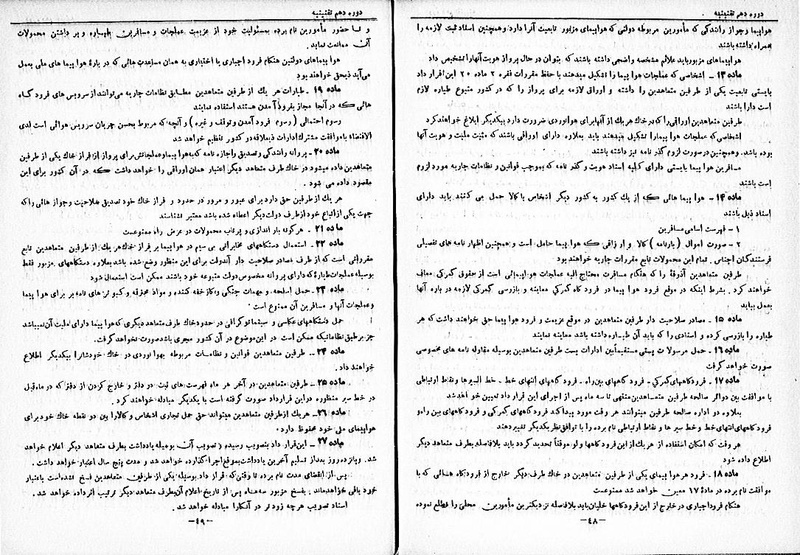 دوره دهم تقنینیه
هواپیما وجواز رانندگی که مأمورین مربوطه دولتی که هواپیمای مزبور تابعیت آنرا دارد وهمچنین اسناد ثبت لازمه را
بهمراه داشته باشند
هواپیماهای مزبور باید علائم مشخصه واضحی داشته باشند که بتوان درحال پرواز هویت آنها را تشخیص داد
ماده ۱۳ - اشخاصی که عملجات هواپیما را تشکیل میدهند با حفظ مقررات فقره ۲ ماده ۲۰ این قرار داد
بایستی تابعیت یکی از طرفین متعاهدین را داشته و اوراق لازمه برای پرواز را که در کشور متبوع طیاره لازم
است دارا باشند
طرفین متعاهدین اوراقی را که در خاک هر یک از آنها برای هوانوردی ضرورت دارد بیکدیگر ابلاغ خواهند کرد
اشخاصی که عملجات هواپیما را تشکیل میدهند باید بعلاوه دارای اوراقی باشند که مثبت ملیت و هویت آنها
بوده باشد. وهمچنین درصورت لزوم گذر نامه نیز داشته باشند
مسافرین هواپیما بایستی دارای کلیه اسناد هویت و گذر نامه که بموجب قوانین و نظامات جاریه مورد لزوم
است باشند
ماده ۱۴ - هوا پیما هائی که از یک کشور به کشور دیگر اشخاص یا کالا حمل می کنند باید دارای
اسناد ذیل باشند
۱ - فهرست اسامی مسافرین
۲ - صورت اموال (بارنامه) کالا و ارزاقی که هوا پیما حامل است و همچنین اظهار نامه های تفصیلی
فرستندگان اجناس. تمام این محمولات تابع مقررات جاریه خواهند بود
طرفین متعاهدین آذوقه را که هنگام مسافرت محتاج الیه عملجات هواپیمائی است از حقوق گمرکی معاف
خواهند کرد. بشرط اینکه در موقع فرود هوا پیما در فرود گاه گمرکی معاینه و بازرسی گمرکی لازمه در باره آنها
بعمل بیاید
ماده ۱۵ - مصادر صلاحیت دار طرفین متعاهدین در موقع عزیمت و فرود هوا پیما حق خواهند داشت که هر
طیاره را بازرسی کرده و اسنادی را که باید آن طیاره داشته باشد معاینه نمایند
ماده ۱۶ - حمل مرسولات پستی مستقیماً بین ادارات پست طرفین متعاهدین بوسیله مقاوله نامه های مخصوصی
صورت خواهد گرفت
ماده ۱۷ - فرودگاههای گمرکی - فرود گاههای بین راه - فرود گاههای انتهای خط - خط السیر ها و نقاط ارتباطی
با موافقت بین دوائر صالحه طرفین متعاهدین منتهی تا سه ماه پس از اجرای این قرار داد تعیین خواهد شد
بعلاوه دو اداره صالحه طرفین میتوانند هر وقت مورد پیدا کند فرودگاههای گمرکی و فرودگاههای بین راه و
فرودگاههای انتهای خط و خط سیر ها و نقاط ارتباطی نام برده را با توافق نظر یکدیگر تغییر دهند
هر وقت که امکان استفاده از هر یک از این فرودگاهها ولو موقتاً تحدید گردد باید بلافاصله بطرف متعاهد دیگر
اطلاع داده شود
ماده ۱۸ - فرود هر هوا پیمای یکی از طرفین متعاهدین در خاک طرف دیگر خارج از فرودگاه هائی که با
موافقت نام برده در مادۀ ۱۷ معین خواهد شد ممنوعست
هنگام فرود اجباری در خارج از این فرودگاهها خلبان باید بلافاصله نزدیکترین مأمورین محلی را مطلع نموده
-۴۸-
دوره دهم تقنینیه
و تا حضور مأمورین نام برده بمسئولیت خود از عزیمت عملجات و مسافرین طیاره و بر داشتن محمولات
آن ممانعت نماید.
هوا پیماهای دولتین هنگام فرود اجباری یا اختیاری به همان مساعدت هائی که در بارۀ هوا پیما های ملی بعمل
می‌آید ذیحق خواهند بود
ماده ۱۹ - طیارات هر یک از طرفین متعاهدین مطابق نظامات جاریه می‌توانند از سرویس های فرود گاه
هائی که در آنجا مجاز بفرود آمدن هستند استفاده نمایند
رسوم احتمالی (رسوم فرود آمدن و توقف و غیره) و آنچه که مربوط بحسن جریان سرویس هوائی است لدی
الاقتضاء با موافقت مشترک ادارات ذیعلاقه در کشور تنظیم خواهد شد
ماده ۲۰ - پروانه رانندگی و تصدیق یا اجازه نامه که به هوا پیما و عملجاتش برای پرواز از فراز خاک یکی از طرفین
متعاهدین داده میشود در خاک طرف متعاهد دیگر اعتبار همان اوراقی را خواهد داشت که در آن کشور برای این
مقصود داده می شود.
هر یک از طرفین حق دارد برای عبور و مرور در حدود و از فراز خاک خود تصدیق صلاحیت و جواز هائی را که
جهت یکی از اتباع خود از طرف دولت دیگر اعطاء شده باشد معتبر نشناسند
ماده ۲۱ - هرگونه بار اندازی و پرتاب محمولات در عرض راه ممنوعست
ماده ۲۲ - استعمال دستگاههای مخابراتی بی سیم در هواپیما بر فراز خاک هر یک از طرفین متعاهدین تابع
مقرراتی است که از طرف مصادر صلاحیت دار آندولت برای این منظور وضع شده باشد بعلاوه دستگاههای مزبور فقط
بوسیله عملجات طیاره که دارای پروانه مخصوص دولت متبوعه خود باشند ممکن است استعمال شود
ماده ۲۳ - حمل اسلحه و مهمات جنگی و گاز خفه کننده و مواد محترقه و کبوتر های نامه بر برای هوا پیما
و عملجات آنها و مسافرین آن ممنوع است
حمل دستگاههای عکاسی و سینما توگرافی در حدود خاک طرف متعاهد دیگری که هوا پیما دارای تابعیت آن نمیباشد
جز بر طبق نظاماتیکه ممکن است در این موضوع در آن کشور مجری باشد صورت نخواهد گرفت.
ماده ۲۴ - طرفین متعاهدین قوانین و نظامات مربوطه بهوا نوردی در خاک خودشان را بیکدیگر اطلاع
خواهند داد.
ماده ۲۵ - طرفین متعاهدین در آخر هر ماه فهرست های ثبت در دفتر و خارج کردن از دفتر که در ماه قبل
در خط سیر منظور در این قرار داد صورت گرفته است با یکدیگر مبادله خواهند کرد.
ماده ۲۶ - هریک از طرفین متعاهدین میتواند حق حمل تجاری اشخاص و کالا را بین دو نقطه خاک خود برای
هواپیمای ملی خود محفوظ دارد.
ماده ۲۷ - این قرار داد بتصویب رسیده و تصویب آن بوسیله یادداشت بطرف متعاهد دیگر اعلام خواهد
شد. و پانزده روز بعد از تسلیم آخرین یادداشت بموقع اجرا گذارده خواهد شد و مدت پنج سال اعتبار خواهد داشت.
پس از انقضای مدت نام برده تا وقتی که قرار داد بوسیله یکی از طرفین متعاهدین فسخ نشده است باعتبار
خود باقی خواهد ماند. بفسخ مزبور سه ماه پس از تاریخ اعلام آن بطرف متعاهد دیگر ترتیب اثر داده خواهد شد.
اسناد تصویب هر چه زود تر در آنکارا مبادله خواهد شد.
-۴۹-